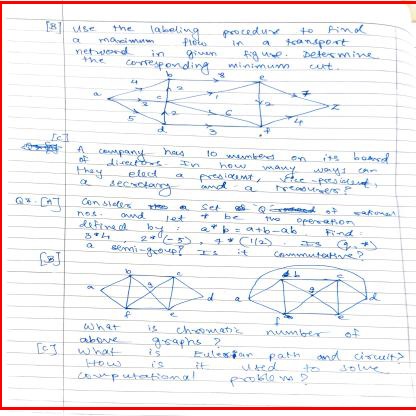 [B] Use the labeling procedure to find
a maximum flow in a transport
network in given figure. Determine
the corresponding minimum cut.
b 8 e
4 2 7
a 3 c 1 2 z
5 2 6 4
d 3 f
[C]
A company has 10 members on its board
of directors In how many ways can
they elect a president, vice-president,
a secretary and a treasurers?
Q3. [A] Consider a set Q of rational
nos. and let * be the operation
defined by : a*b = a+b-ab. Find:
3*4 2*(-5), 7*(1/2). Is (Q,*)
a semi-group? Is it commutative?
[B]
b c b c
a g d a g d
f e f e
What is chromatic number of
above graphs?
[C] What is Eulerian path and circuit?
How is it used to solve
computational problem?